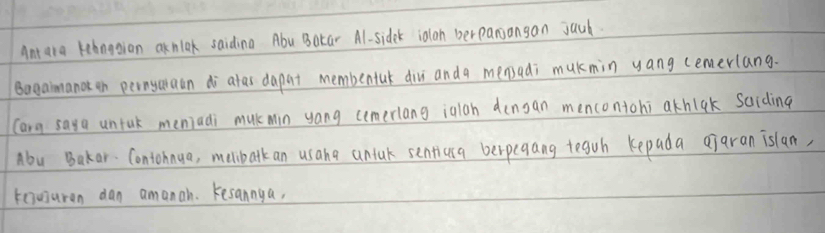 Antara kehagsion akhlak saidina Abu Bakar Al-sidek ialah berpandangan jauh.
Bagaimanakah pernyataan di atas dapat membentuk diri anda menjadi mukmin yang cemerlang.
Cara saya untuk menjadi mukmin yang cemerlang ialah dengan mencontohi akhlak Saidina
Abu Bakar. Contohnya, melibatkan usaha untuk sentiasa berpegang teguh kepada ajaran islam,
kejujuran dan amanah. Kesannya,